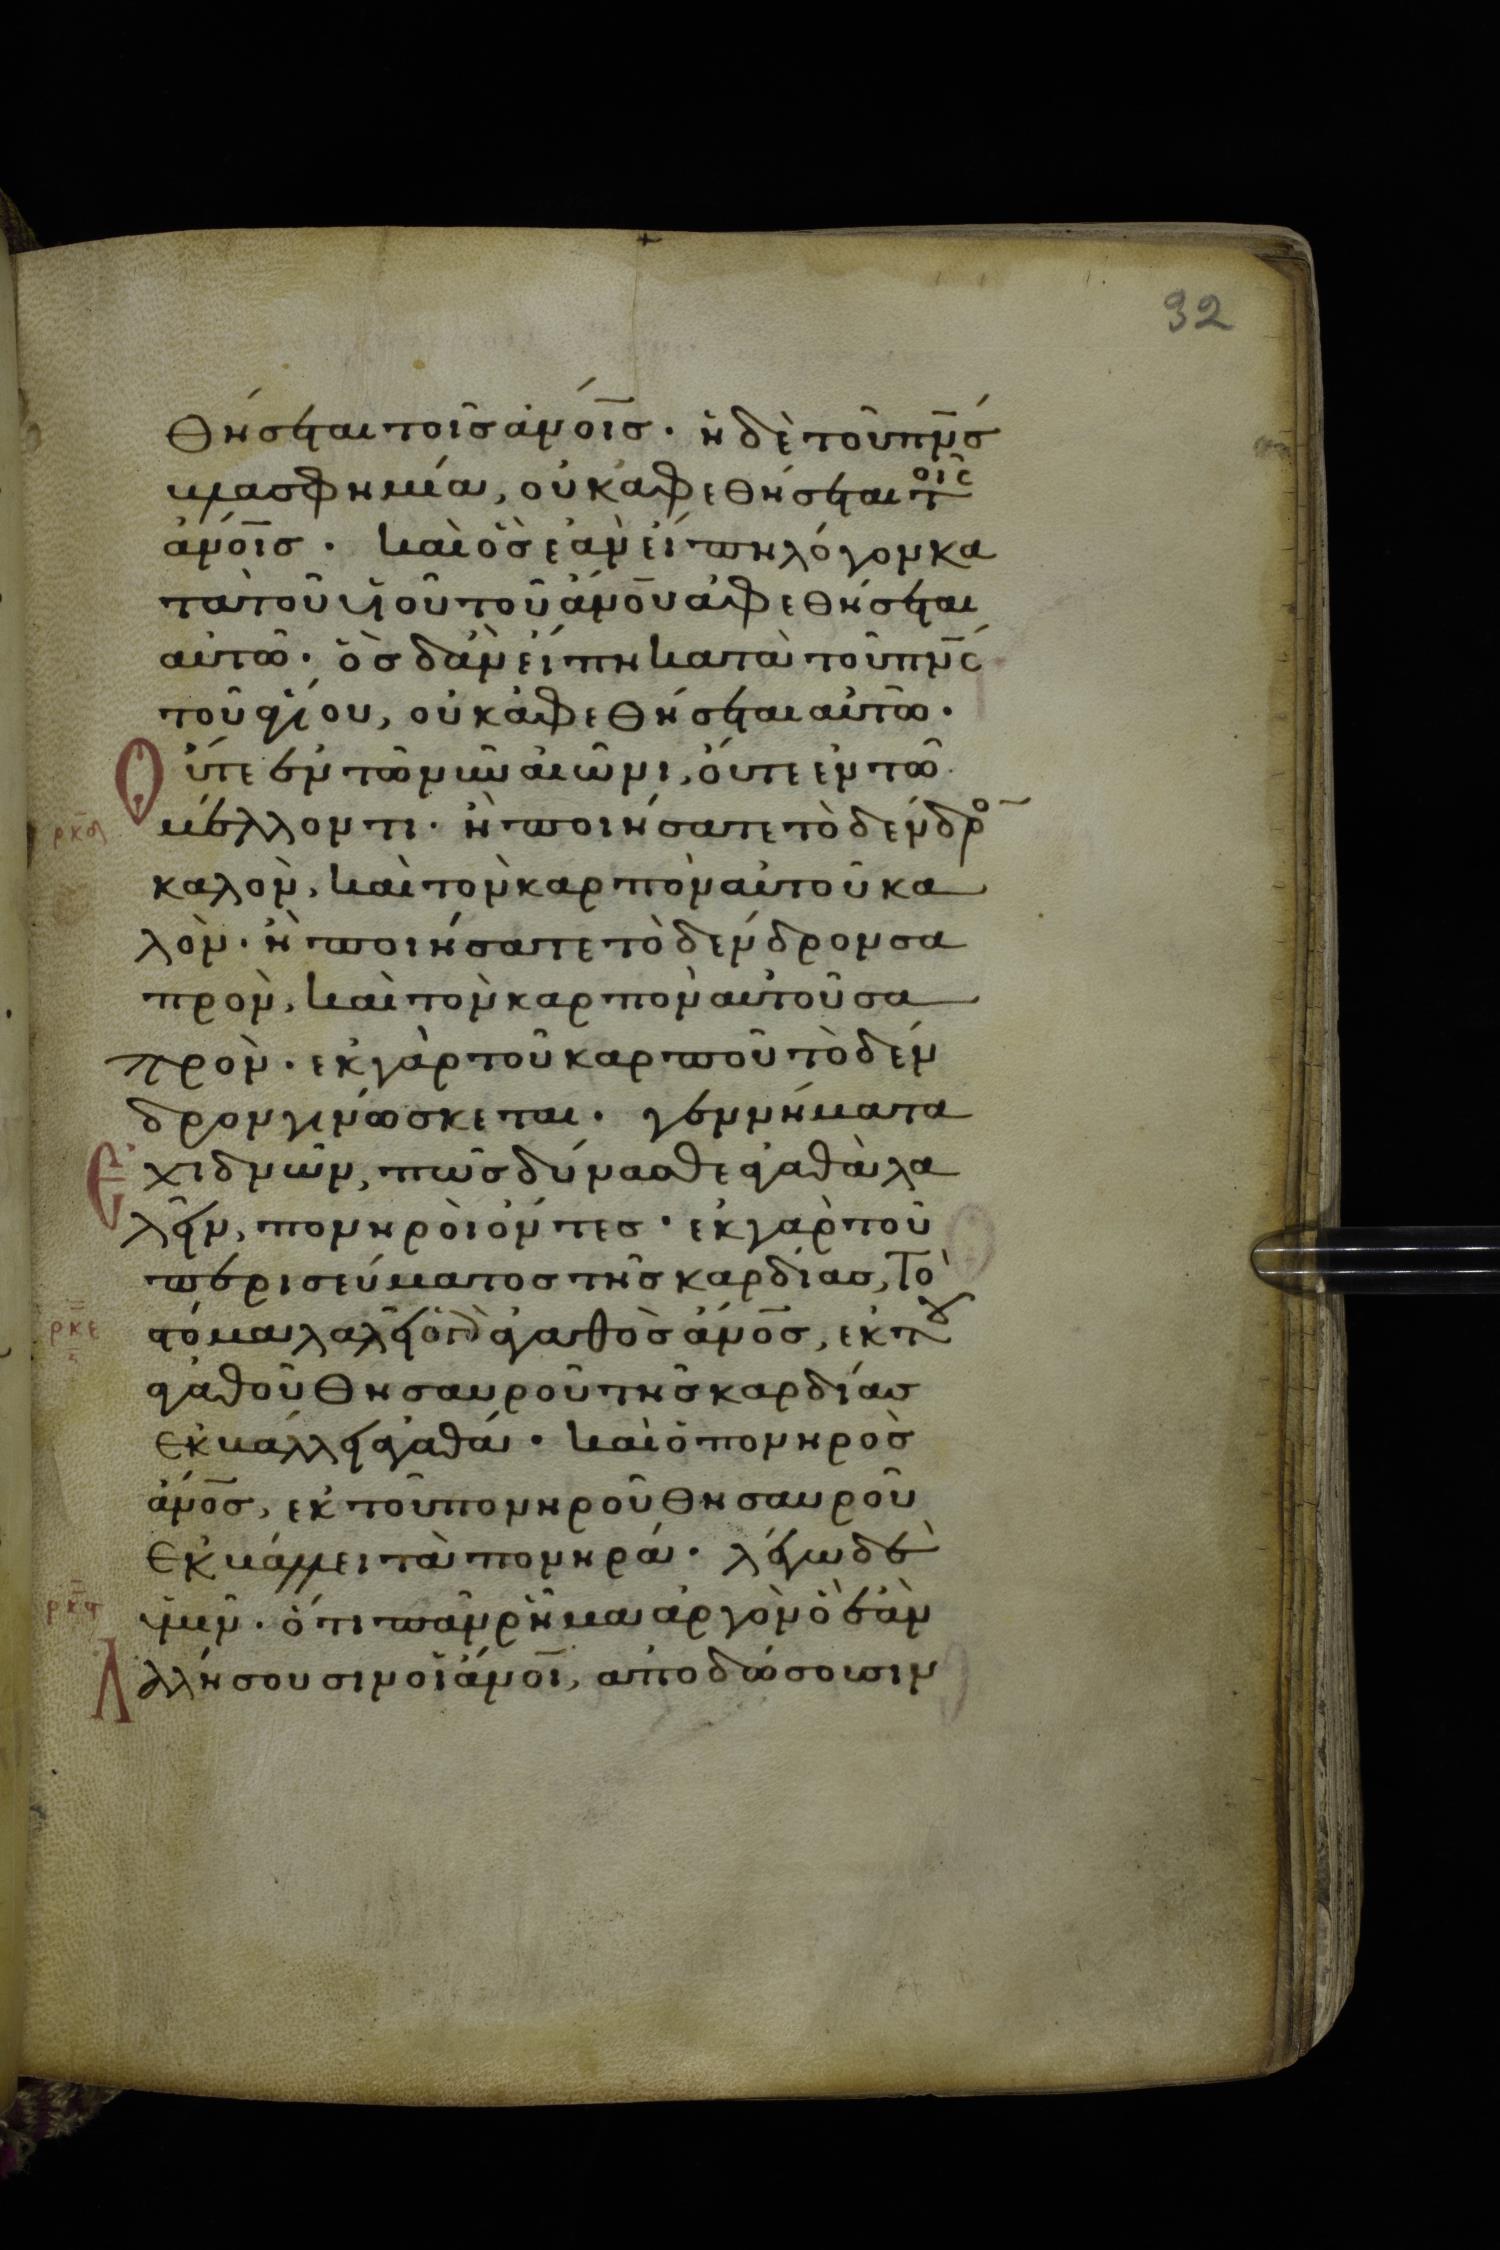 32
θήσεται τοῖς ἀνοις· ἡ δὲ τοῦ πνς
βλασφημία, οὐκ ἀφεθήσεται τοῖς
ἀνοις· καὶ ὃς ἐὰν εἴπη λόγον κα
τὰ τοῦ υἱοῦ τοῦ ἀνου ἀφεθήσεται
αὐτῶ· ὃς δ' ἂν εἴπη κατὰ τοῦ πνς
τοῦ ἁγίου, οὐκ ἀφεθήσεται αὐτῶ·
Οὔτε ἐν τῶ νῦν αἰῶνι, οὔτε ἐν τῶ
ρκδ μέλλοντι· ἢ ποιήσατε τὸ δένδρο
καλὸν, καὶ τὸν καρπὸν αὐτοῦ κα
λὸν· ἢ ποιήσατε τὸ δένδρον σα
πρὸν, καὶ τὸν καρπὸν αὐτοῦ σα
πρὸν· ἐκ γὰρ τοῦ καρποῦ τὸ δέν
δρον γινώσκεται· γεννήματα
Ἐχιδνῶν, πῶς δύνασθε ἀγαθὰ λα
λεῖν, πονηροὶ ὄντες· ἐκ γὰρ τοῦ
περισεύματος τῆς καρδίας, τὸ
ρκε στόμα λαλεῖ ὁ ἀγαθὸς ἀνος, ἐκ τοῦ
ἀγαθοῦ θησαυροῦ τῆς καρδίας
ἐκβάλλει ἀγαθά· καὶ ὁ πονηρὸς
ἀνος, ἐκ τοῦ πονηροῦ θησαυροῦ
ἐκβάλλει τὰ πονηρά· λέγω δὲ
ρκϛ ὑμῖν· ὅτι πᾶν ῥῆμα ἀργὸν ὃ ἐὰν
Λαλήσουσιν οἱ ἀνοι, ἀποδώσουσιν